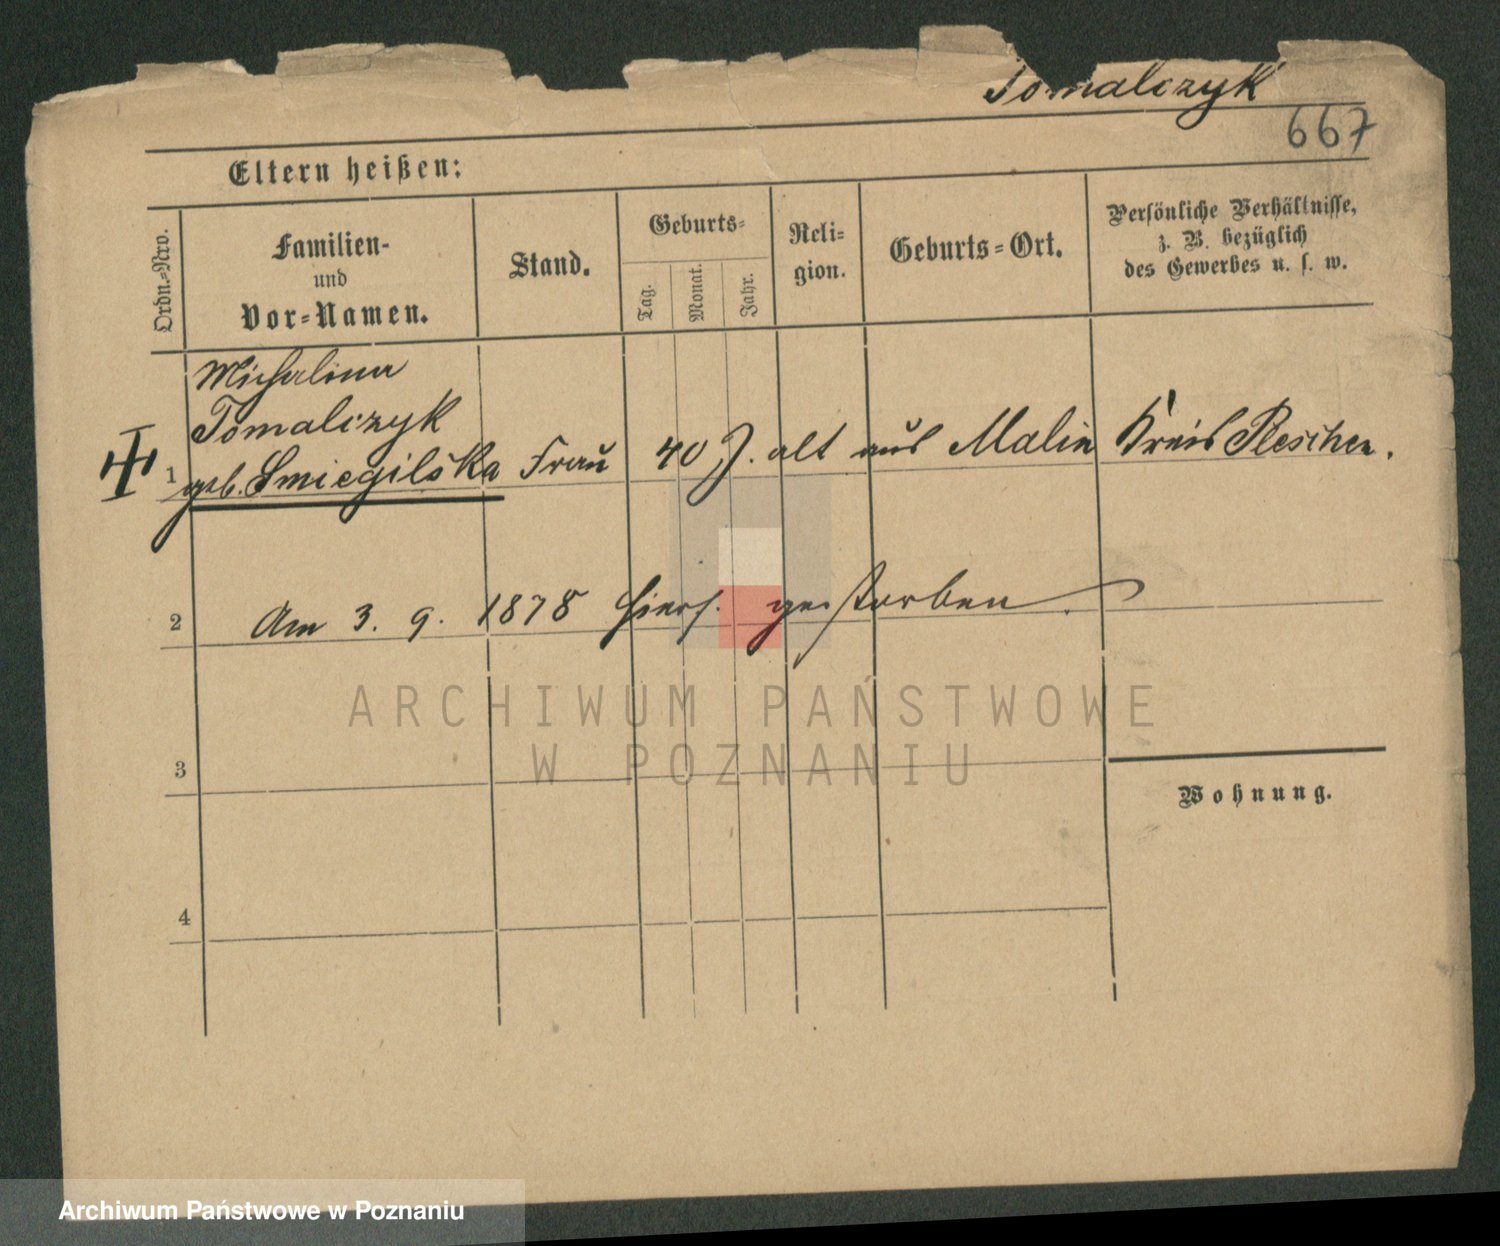 Tomalczyk
667
Eltern heißen:
Ordn.-Nro.
Familien-
und
Vor-Namen.
Stand.
Geburts-
Tag.
Monat.
Jahr.
Reli-
gion.
Geburts-Ort.
Persönliche Verhältnisse,
z. B. bezüglich
des Gewerbes u. s. w.
Michalina
Tomalczyk
1 geb. Smiegilska Frau 40 J. alt aus Malin Kreis Pleschen.
2 Am 3. 9. 1878 hiers. gestorben.
3
Wohnung.
4
ARCHIWUM PAŃSTWOWE
W POZNANIU
Archiwum Państwowe w Poznaniu